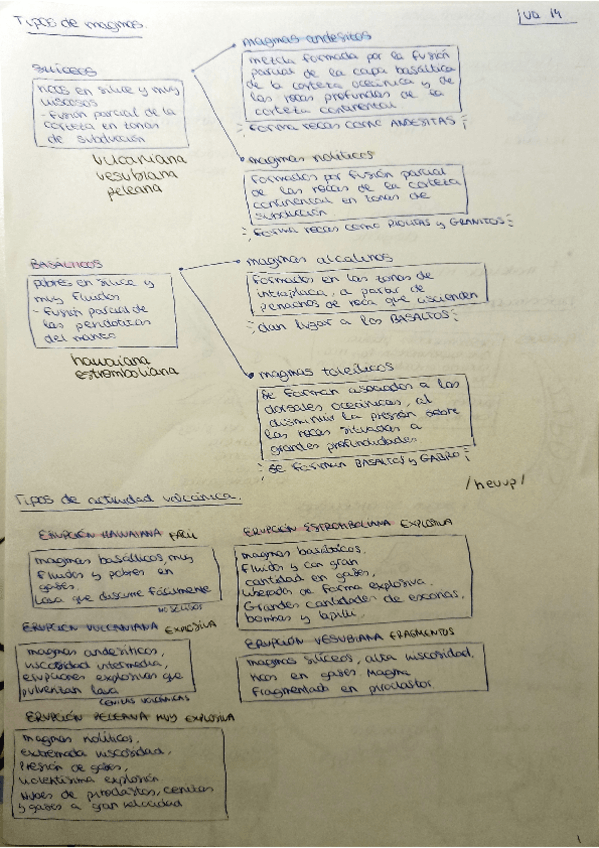 Tipos de magmas.
UD 14
SILÍCEOS
ricos en sílice y muy
viscosos
- fusión parcial de la
corteza en zonas
de subducción
vulcaniana
vesubiana
peleana
magmas andesíticos
mezcla formada por la fusión
parcial de la capa basáltica
de la corteza oceánica y de
las rocas profundas de la
corteza continental
forma rocas como ANDESITAS
magmas riolíticos
formados por fusión parcial
de las rocas de la corteza
continental en zonas de
subducción
forma rocas como RIOLITAS y GRANITOS
BASÁLTICOS
pobres en sílice y
muy fluidos
- fusión parcial de
las peridotitas
del manto
hawaiana
estromboliana
magmas alcalinos
formados en las zonas de
intraplaca, a partir de
penachos de roca que ascienden
dan lugar a los BASALTOS
magmas toleíticos
se forman asociados a las
dorsales oceánicas, al
disminuir la presión sobre
las rocas situadas a
grandes profundidades
se forman BASALTOS y GABRO
/hevvp/
Tipos de actividad volcánica.
ERUPCIÓN HAWAIANA FÁCIL
magmas basálticos, muy
fluidos y pobres en
gases,
lava que discurre fácilmente
ERUPCIÓN ESTROMBOLIANA EXPLOSIVA
magmas basálticos.
Fluidos y con gran
cantidad en gases,
liberados de forma explosiva.
Grandes cantidades de escorias,
bombas y lapilli.
ERUPCIÓN VULCANIANA EXPLOSIVA
magmas andesíticos,
viscosidad intermedia,
erupciones explosivas que
pulverizan lava
CENIZAS VOLCÁNICAS
ERUPCIÓN VESUBIANA FRAGMENTOS
magmas silíceos, alta viscosidad,
ricos en gases. Magma
fragmentado en piroclastos
ERUPCIÓN PELEANA MUY EXPLOSIVA
magmas riolíticos,
extremada viscosidad,
presión de gases,
violentísima explosión
nubes de piroclastos, cenizas
y gases a gran velocidad
1